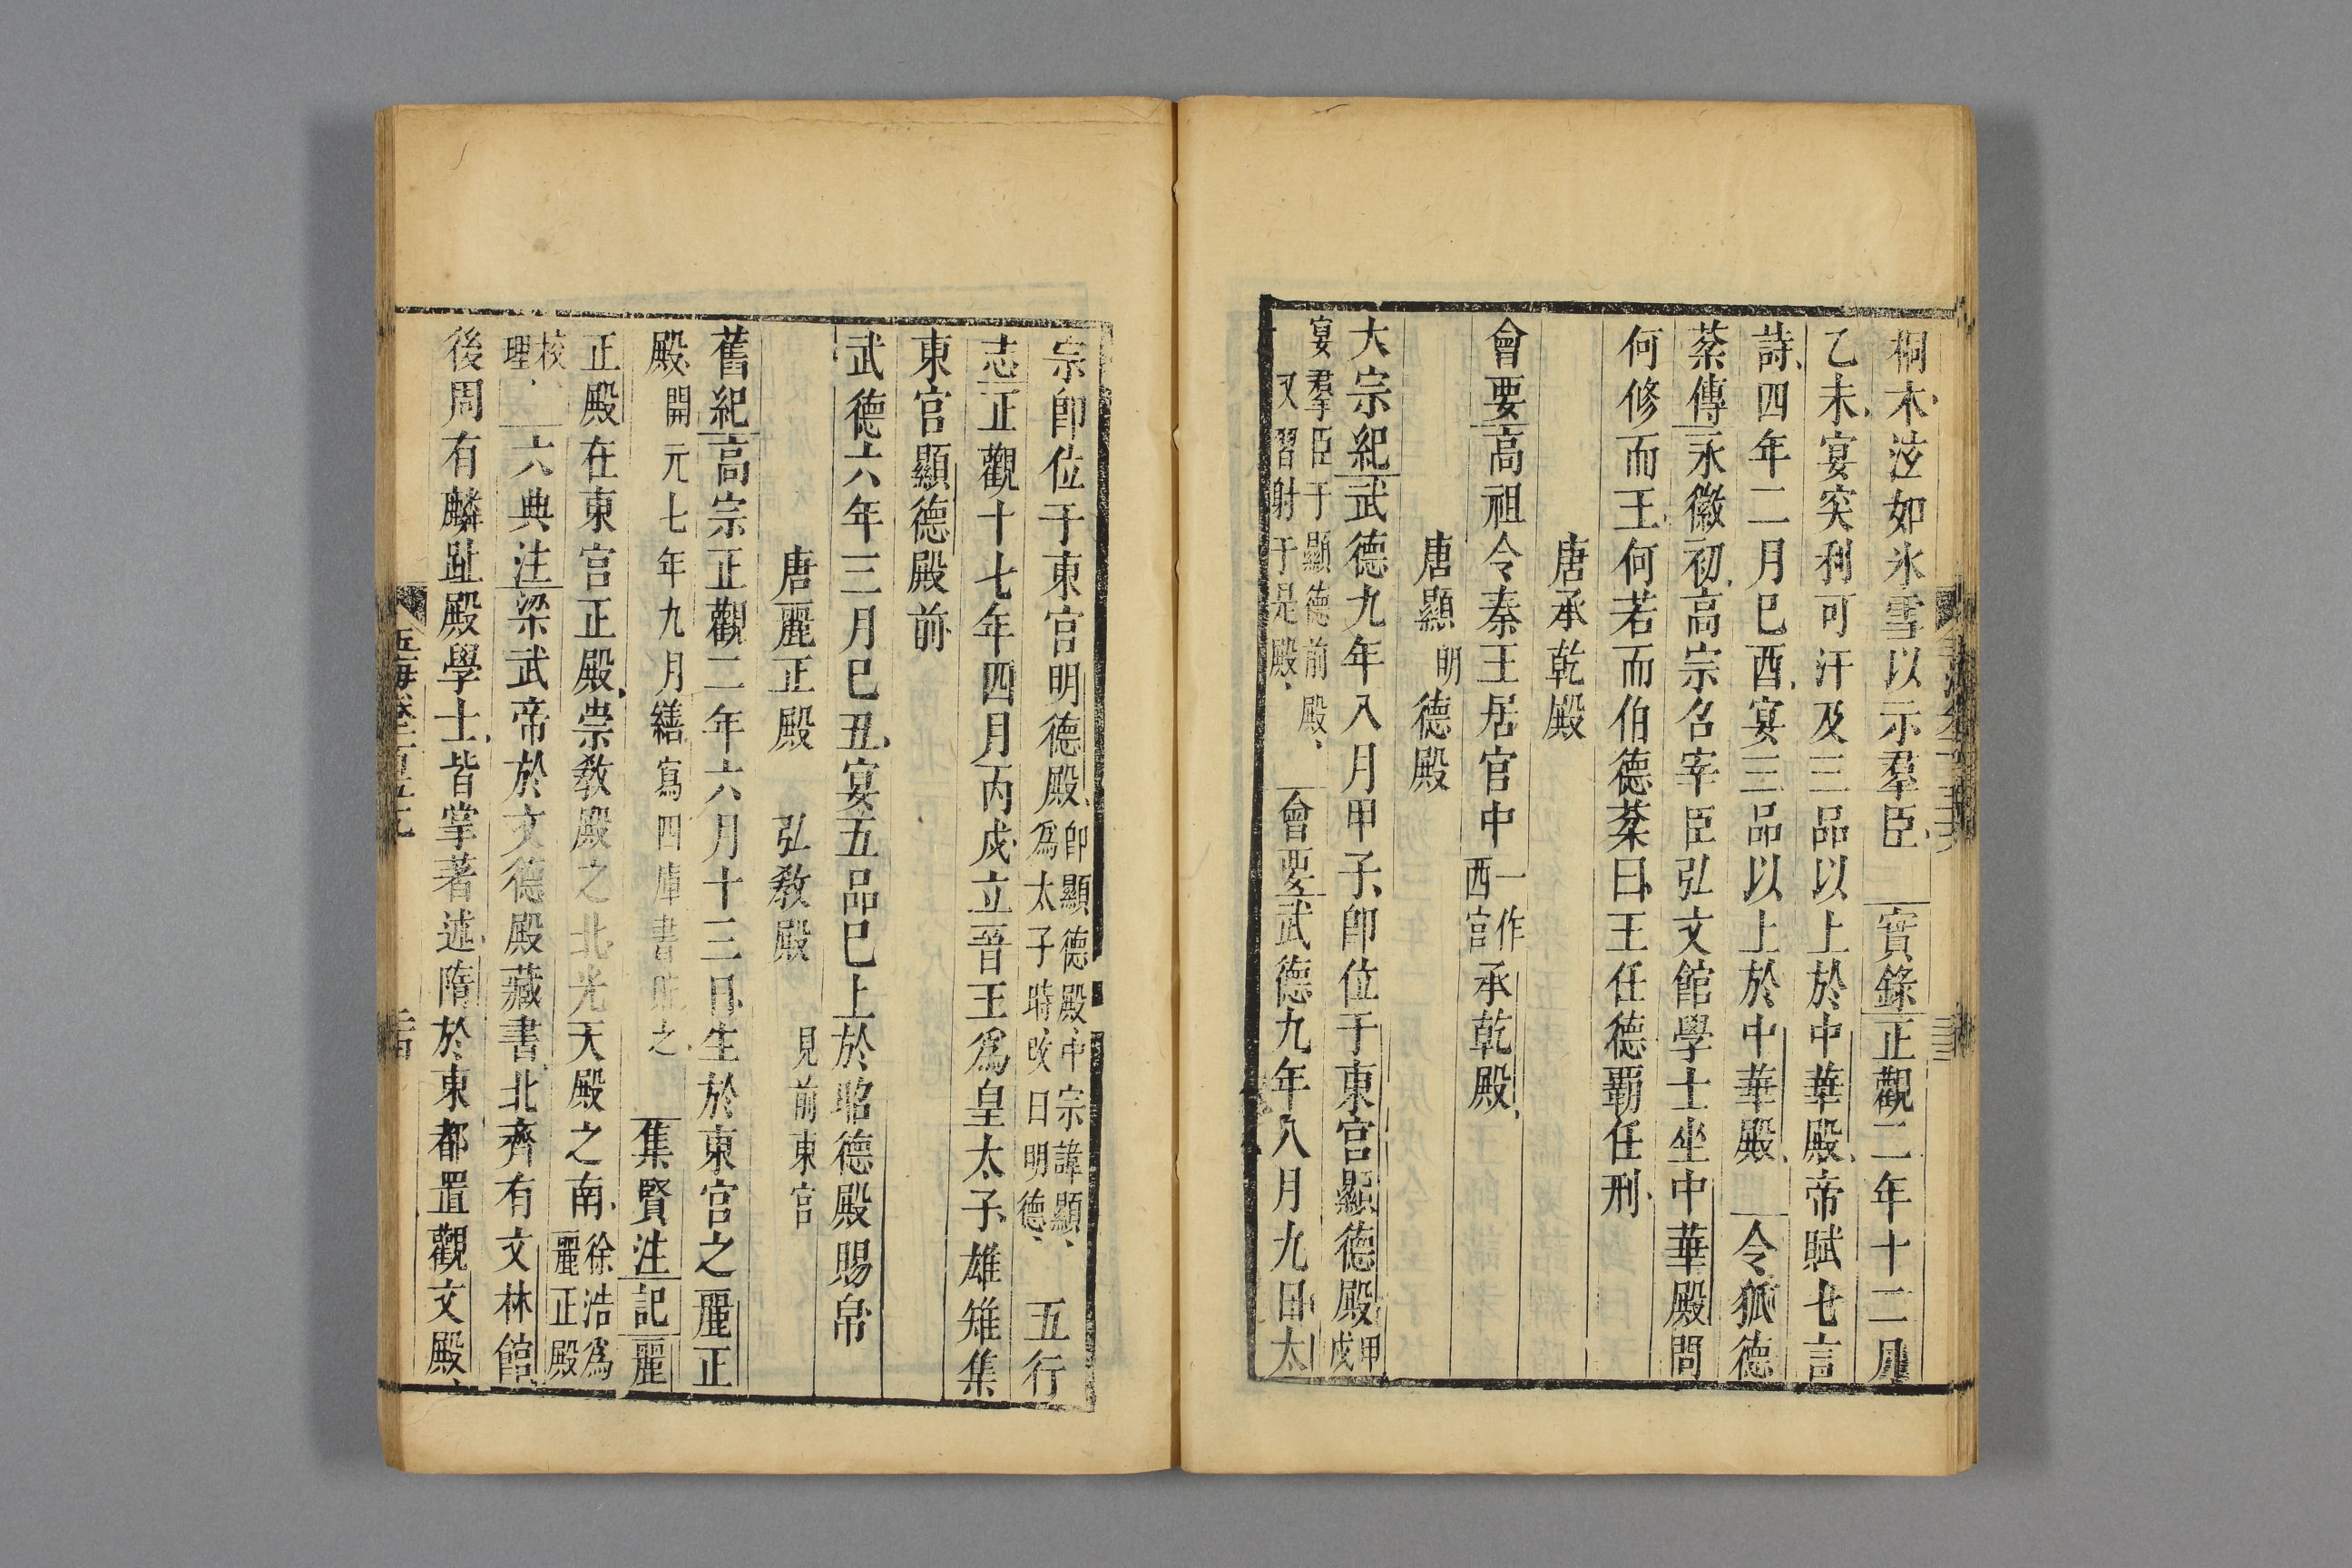 桐木泫如氷雪以示羣臣　實錄正觀二年十二月
乙未宴突利可汗及三品以上於中華殿帝賦七言
詩四年二月巳酉宴三品以上於中華殿　令狐德
棻傳永徽初高宗名宰臣弘文館學士坐中華殿問
何修而王何若而伯德棻曰王任德覇任刑
唐承乾殿
會要高祖令秦王居宮中一作西宮承乾殿
唐顯明德殿
大宗紀武德九年八月甲子即位于東宮顯德殿甲戌
宴羣臣于顯德前殿又習射于是殿　會要武德九年八月九日太
宗即位于東宮明德殿即顯德殿中宗諱顯爲太子時改曰明德　五行
志正觀十七年四月丙戌立晉王爲皇太子雄雉集
東宮顯德殿前
武德六年三月巳丑宴五品巳上於昭德殿賜帛
唐麗正殿　弘敎殿　見前東宮
舊紀高宗正觀二年六月十三日生於東宮之麗正
殿開元七年九月繕寫四庫書於之　集賢注記麗
正殿在東宮正殿崇敎殿之北光天殿之南徐浩爲麗正殿
校理　六典注梁武帝於文德殿藏書北齊有文林館
後周有麟趾殿學士皆掌著述隋於東都置觀文殿